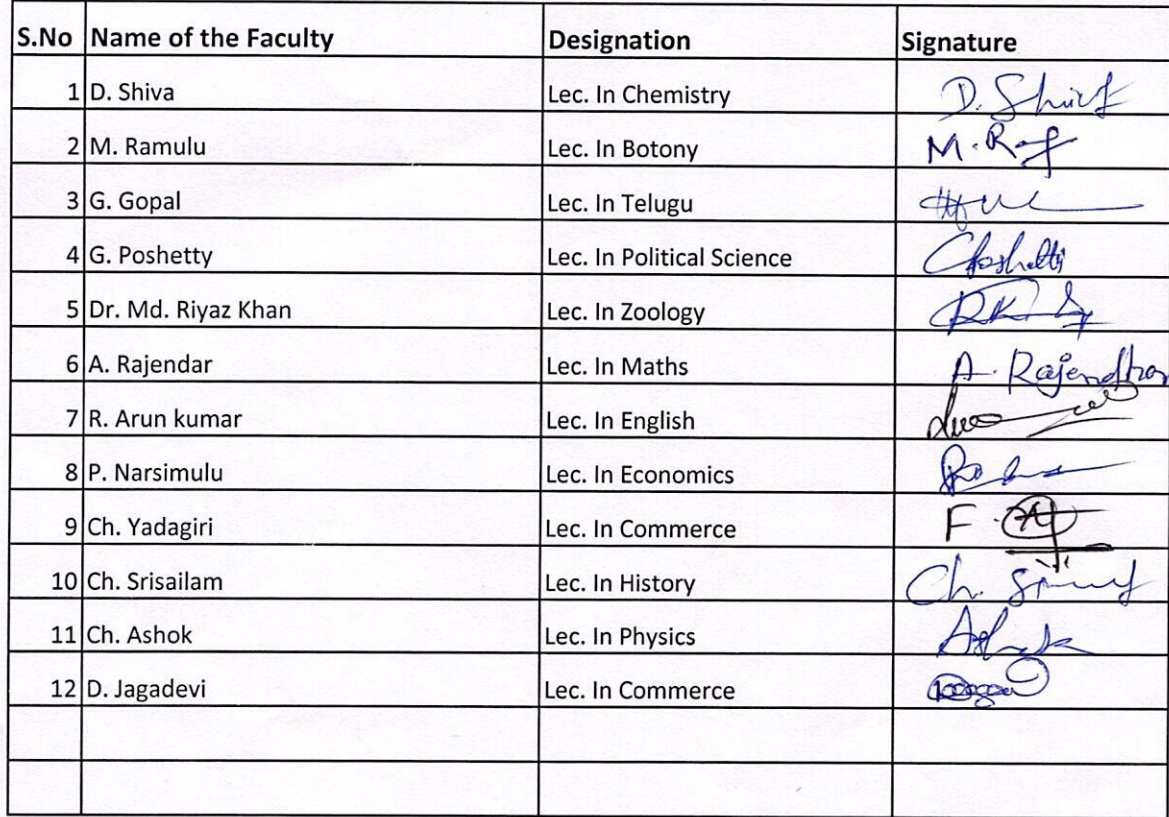 S.No Name of the Faculty Designation Signature
1 D. Shiva Lec. In Chemistry D. Shiva
2 M. Ramulu Lec. In Botony M. R
3 G. Gopal Lec. In Telugu
4 G. Poshetty Lec. In Political Science
5 Dr. Md. Riyaz Khan Lec. In Zoology
6 A. Rajendar Lec. In Maths A. Rajendhar
7 R. Arun kumar Lec. In English
8 P. Narsimulu Lec. In Economics
9 Ch. Yadagiri Lec. In Commerce
10 Ch. Srisailam Lec. In History Ch.
11 Ch. Ashok Lec. In Physics Ashok
12 D. Jagadevi Lec. In Commerce